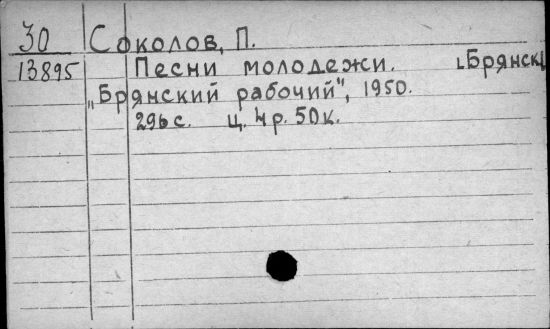 30 Соколов, П.
13895 Песни молодежи. [Брянск]
„Брянский рабочий", 1950.
296 с. ц. 4 р. 50 к.